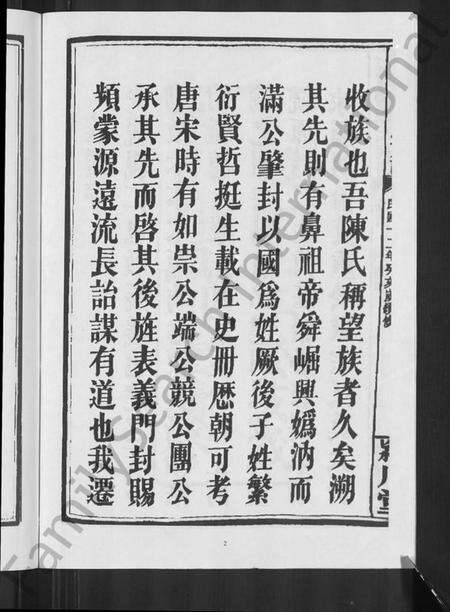 收族也吾陳氏稱望族者久矣溯
其先則有鼻祖帝舜崛興嬀汭而
滿公肇封以國爲姓厥後子姓繁
衍賢哲挺生載在史冊歷朝可考
唐宋時有如崇公端公競公團公
承其先而啓其後旌表義門封賜
頻蒙源遠流長詒謀有道也我遷
2
FamilySearch International